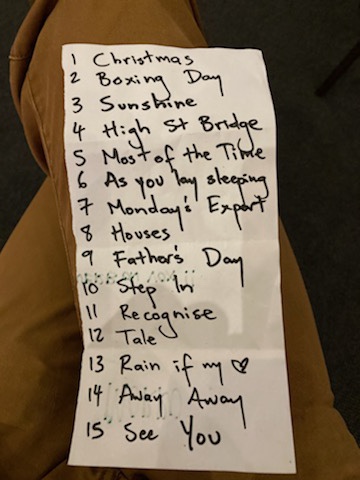 1 Christmas
2 Boxing Day
3 Sunshine
4 High St Bridge
5 Most of the Time
6 As you lay sleeping
7 Monday's Expert
8 Houses
9 Father's Day
10 Step In
11 Recognise
12 Tale
13 Rain if my ♡
14 Away Away
15 See You